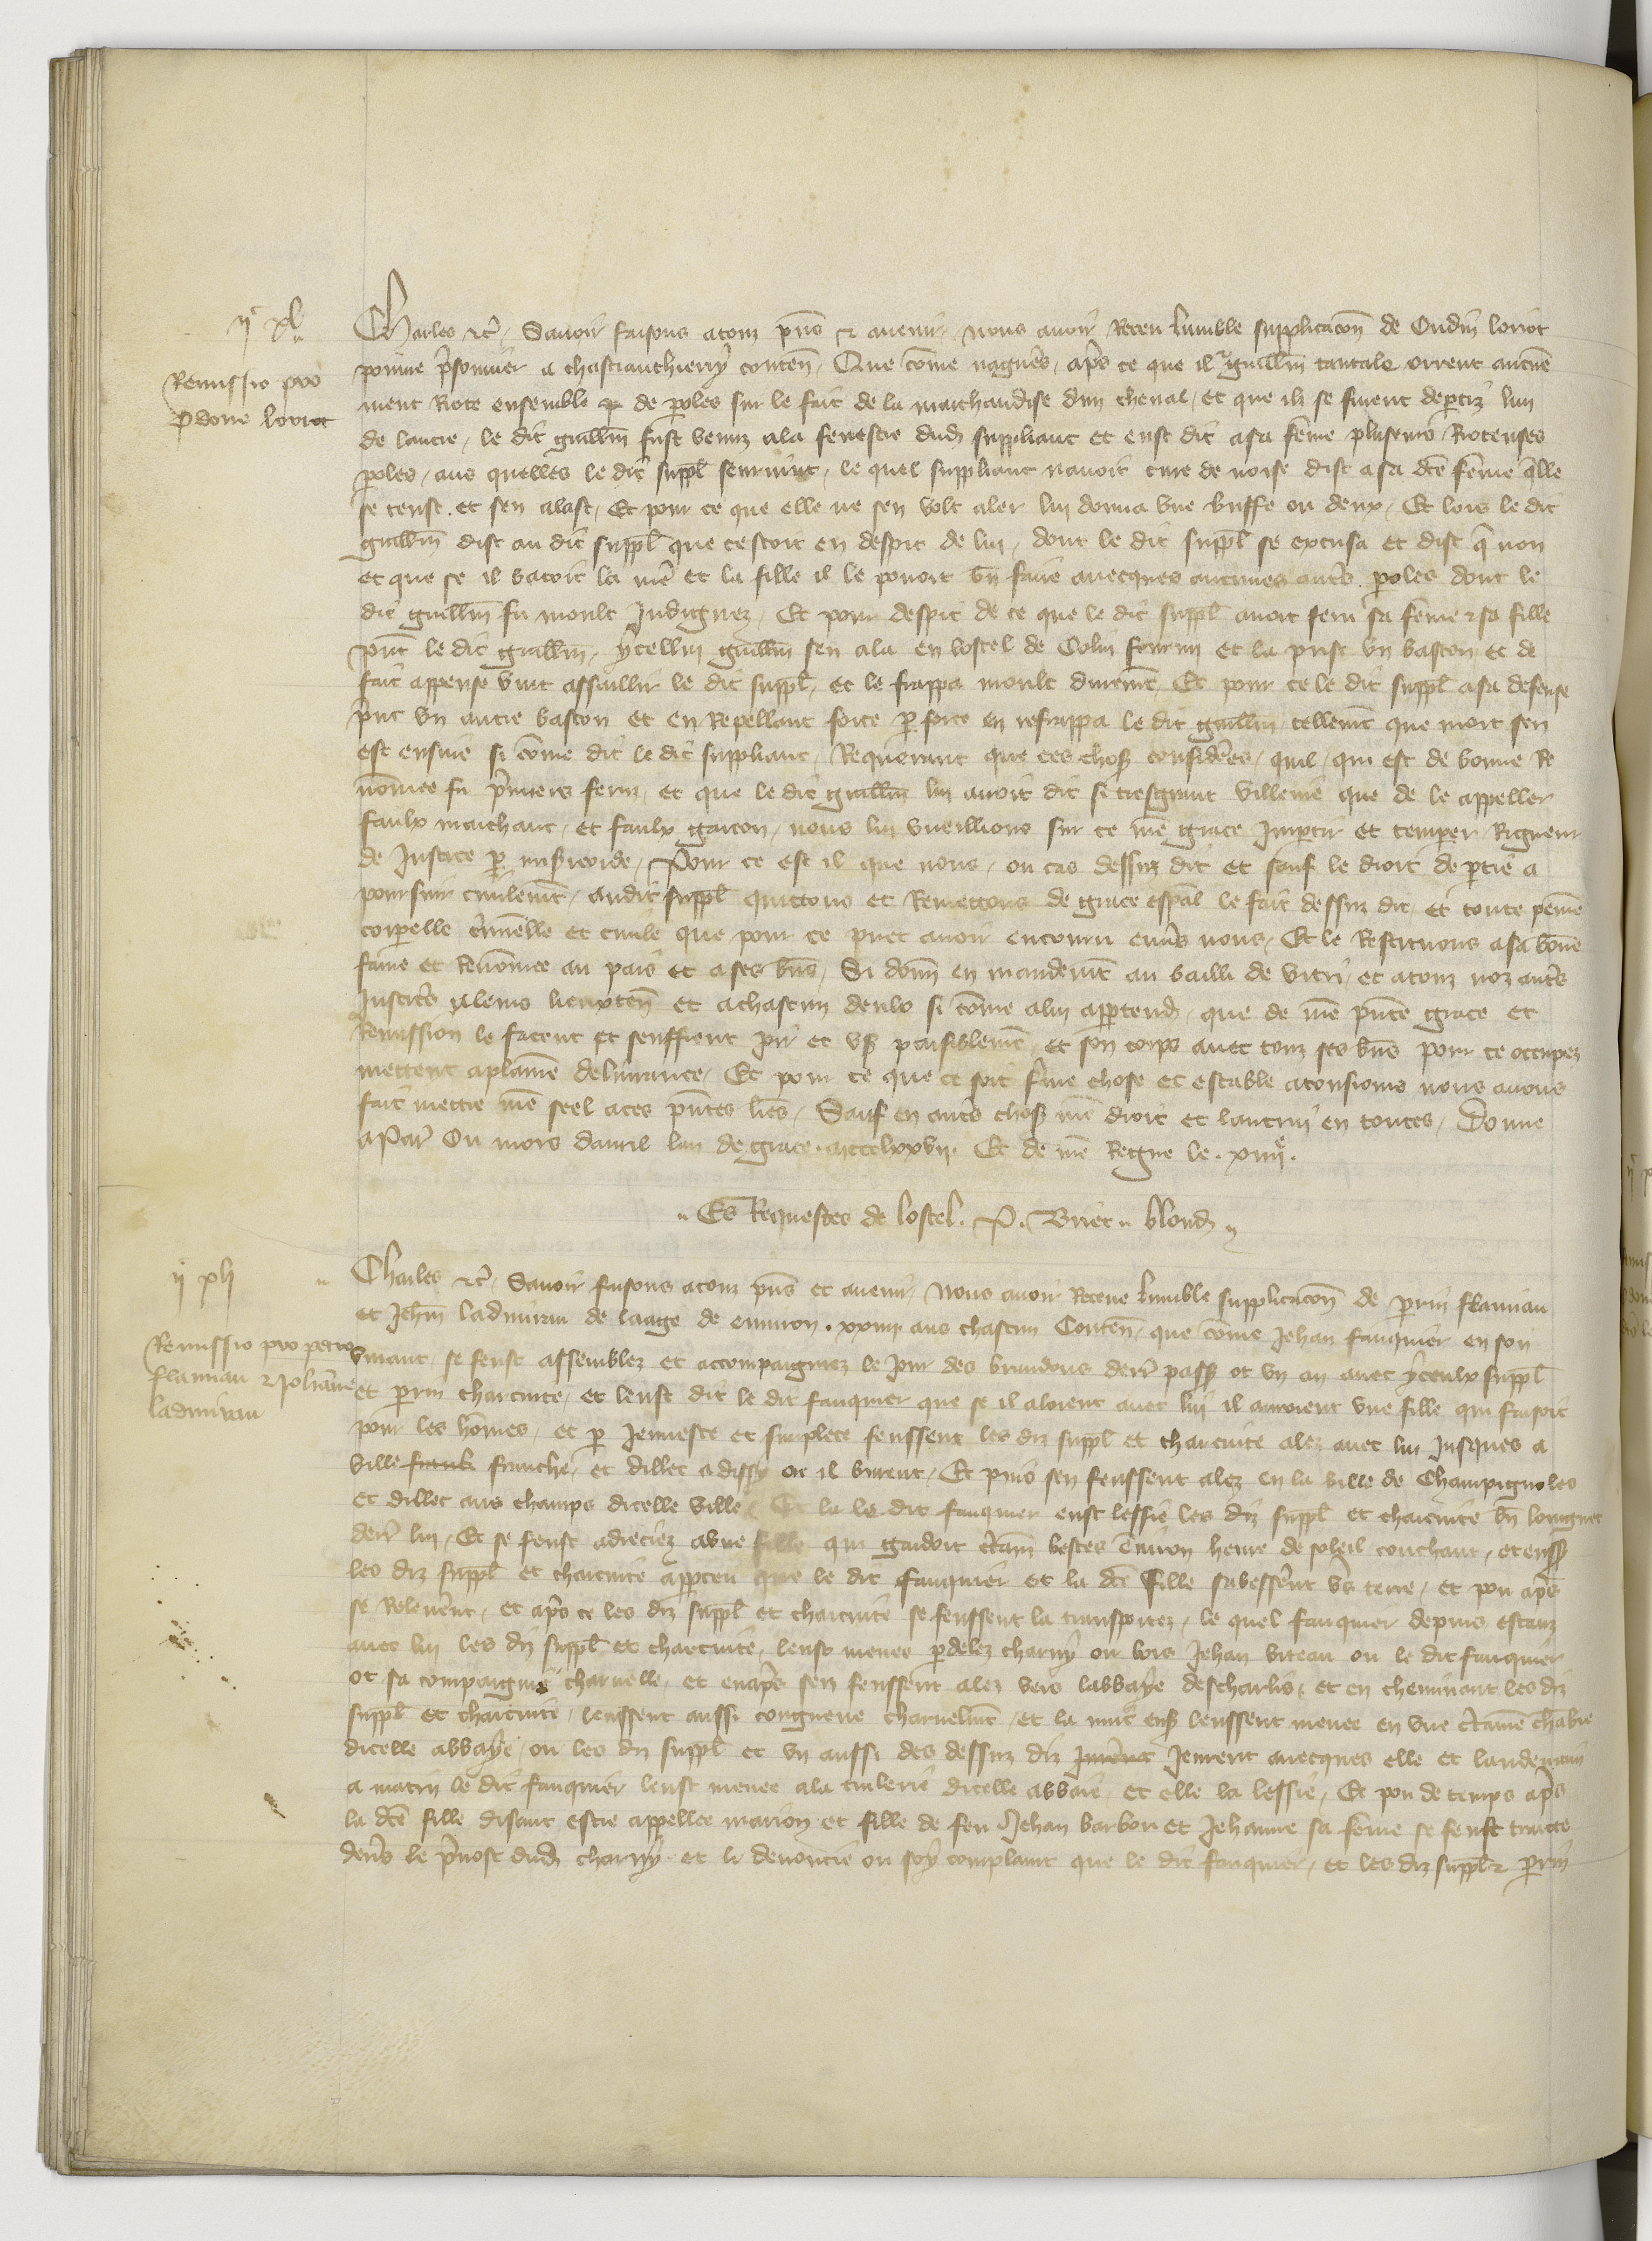 IIc XL
Remissio pro
Odone loriot
Charles etc. Savoir faisons a touz pns et avenir nous avoir receu lumble supplicacon de Oudin loriot
povre prisonnier a chastiauthierry conten. Que comme nagueres, apres ce que il et guillm tantale orrent aucune
ment riote ensemble de paroles sur le fait de la marchandise dun cheval, et que ilz se furent departiz lun
de lautre, le dit guillm fust venuz a la fenestre dud suppliant et eust dit a sa feme plusieurs rioteuses
paroles, aus quelles le dit suppl seurvint, le quel suppliant navoit cure de noise dist a sa dce feme qlle
se teust et sen alast, Et pour ce que elle ne sen volt aler lui donna une buffe ou deux, Et lors le dit
guillm dist au dit suppl que cestoit en despit de lui, dont le dit suppl se excusa et dist q non
et que se il batoit la mere et la fille il le povoit bn faire avecques aucunes autres paroles dont le
dit guillm fu moult Indignez, Et pour despit de ce que le dit suppl avoit feru sa feme et sa fille
pnt le dit guillm, ycellui guillm sen ala en lostel de Colin et la prist un baston et de
fait appense vint assaillir le dit suppl, et le frappa moult durement, Et pour ce le dit suppl a sa defense
print un autre baston et en repellant force par force en refrappa le dit guillm tellement que mort sen
est ensuie si comme dit le dit suppliant, Requerant que ces choses considerees, quil, qui est de bonne re
nommee fu premiers feruz, et que le dit guillm lui avoit dit si tresgrant villenie que de le appeller
faulx marchant, et faulx garcon, nous lui vueillions sur ce nre grace Impartir et temperer Rigueur
de Justice par misericorde, Pour ce est il que nous, ou cas dessuz dit et sauf le droit de partie a
poursuir civilement, audit suppl quittons et Remettons de grace espal le fait dessuz dit et toute peine
corporelle criminelle et civile que pour ce puet avoir encouru envers nous, Et le Restituons a sa bonne
fame et Renommee au pais et a ses biens, Si donn en mandement au bailli de vitri, et a touz noz autres
Justiciers a leurs lieuxten et a chascun deulx si comme a lui appartendra, que de nre pnte grace et
Remission le facent et seuffrent joir et user paisiblement et son corps avec touz ses biens pour ce occupez
mettent a plaine delivrance, Et pour ce que ce soit ferme chose et estable a tousiours nous avons
fait mettre nre seel a ces pntes lres, Sauf en autres choses nre droit et lautruy en toutes, Donne
a Par Ou mois davril lan de grace mccclxxvii. Et de nre Regne le xiiiie.
Es Requestes de lostel. P. Briet blond
IIc XLI
Remissio pro petro
flamian et Johanne
ladmiran
Charles etc. Savoir faisons a touz pns et avenir, Nous avoir receue lumble supplicacon de perrin flamian
et Jehm ladmiran de laage de environ xxiiii ans chascun Conten, que comme Jehan fauquier en son
vivant, se feust assemblez et accompaigniez le jour des brandons derr passe ot un an avec yceulx suppl
et perrin charcuite, et leust dit le dit fauquier que se il aloient avec lui il auroient une fille qui faisoit
pour les hommes, et par Jeunesce et simplece feussent les diz suppl et charcuite alez avec lui jusques a
ville franche, et dillec a dissy ou il burent, Et puis sen feussent alez en la ville de Champignoles
et dillec aus champs dicelle ville, Et la le dit fauquier eust lessie les diz suppl et charcuite bn longuet
derr lui, Et se feust adreciez a une fille qui gardoit certain bestes environ heure de soleil couchant, et eussent
les diz suppl et charcuite apperceu que le dit fauquier et la dce fille sabesserent vers terre, et pou apres
se releverent, et apres ce les diz suppl et charcuite se feussent la transportez, le quel fauquier depuis estanz
avec lui les diz suppl et charcuite, leust menee par delez charny ou bois Jehan viteau ou le dit fauquier
ot sa compaignie charnelle, et enapres sen feussent alez vers labbaye descharlis, et en cheminant les diz
suppl et charcuite, leussent aussi congneue charnelment, et la nuit ens leussent menee en une certaine chambre
dicelle abbaye, ou les diz suppl et un aussi des dessuz diz Jeurent avecques elle et landemain
a matin le dit fauquier leust menee a la tuilerie dicelle abbaie et elle la lessie, Et pou de temps apres
la dce fille disant estre appellee marion et fille de feu Jehan barbou et Jehanne sa feme se feust traitte
devers le prevost dud charny et li denoncie ou soy complaint que le dit fauquier, et les diz suppl et perrin